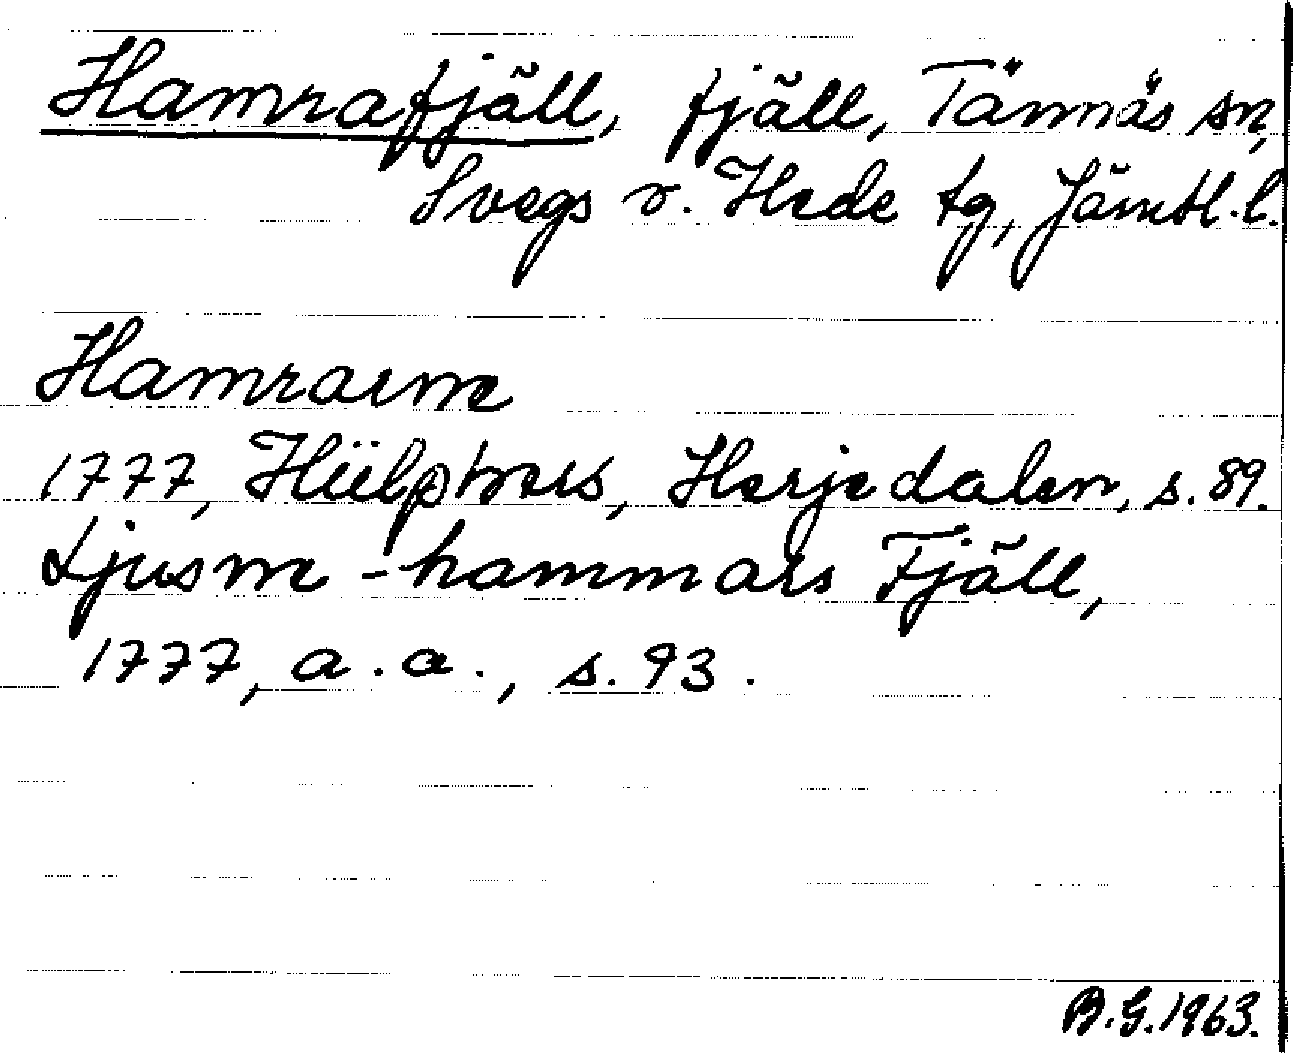 Hamrafjäll, fjäll, Tännäs sn,
Svegs o. Hede tg, Jämtl. l.
Hamrarne
1777, Hülphers, Herjedalen, s. 89.
Ljusne-hammars Fjäll,
1777, a. a., s. 93.
B.G. 1963.